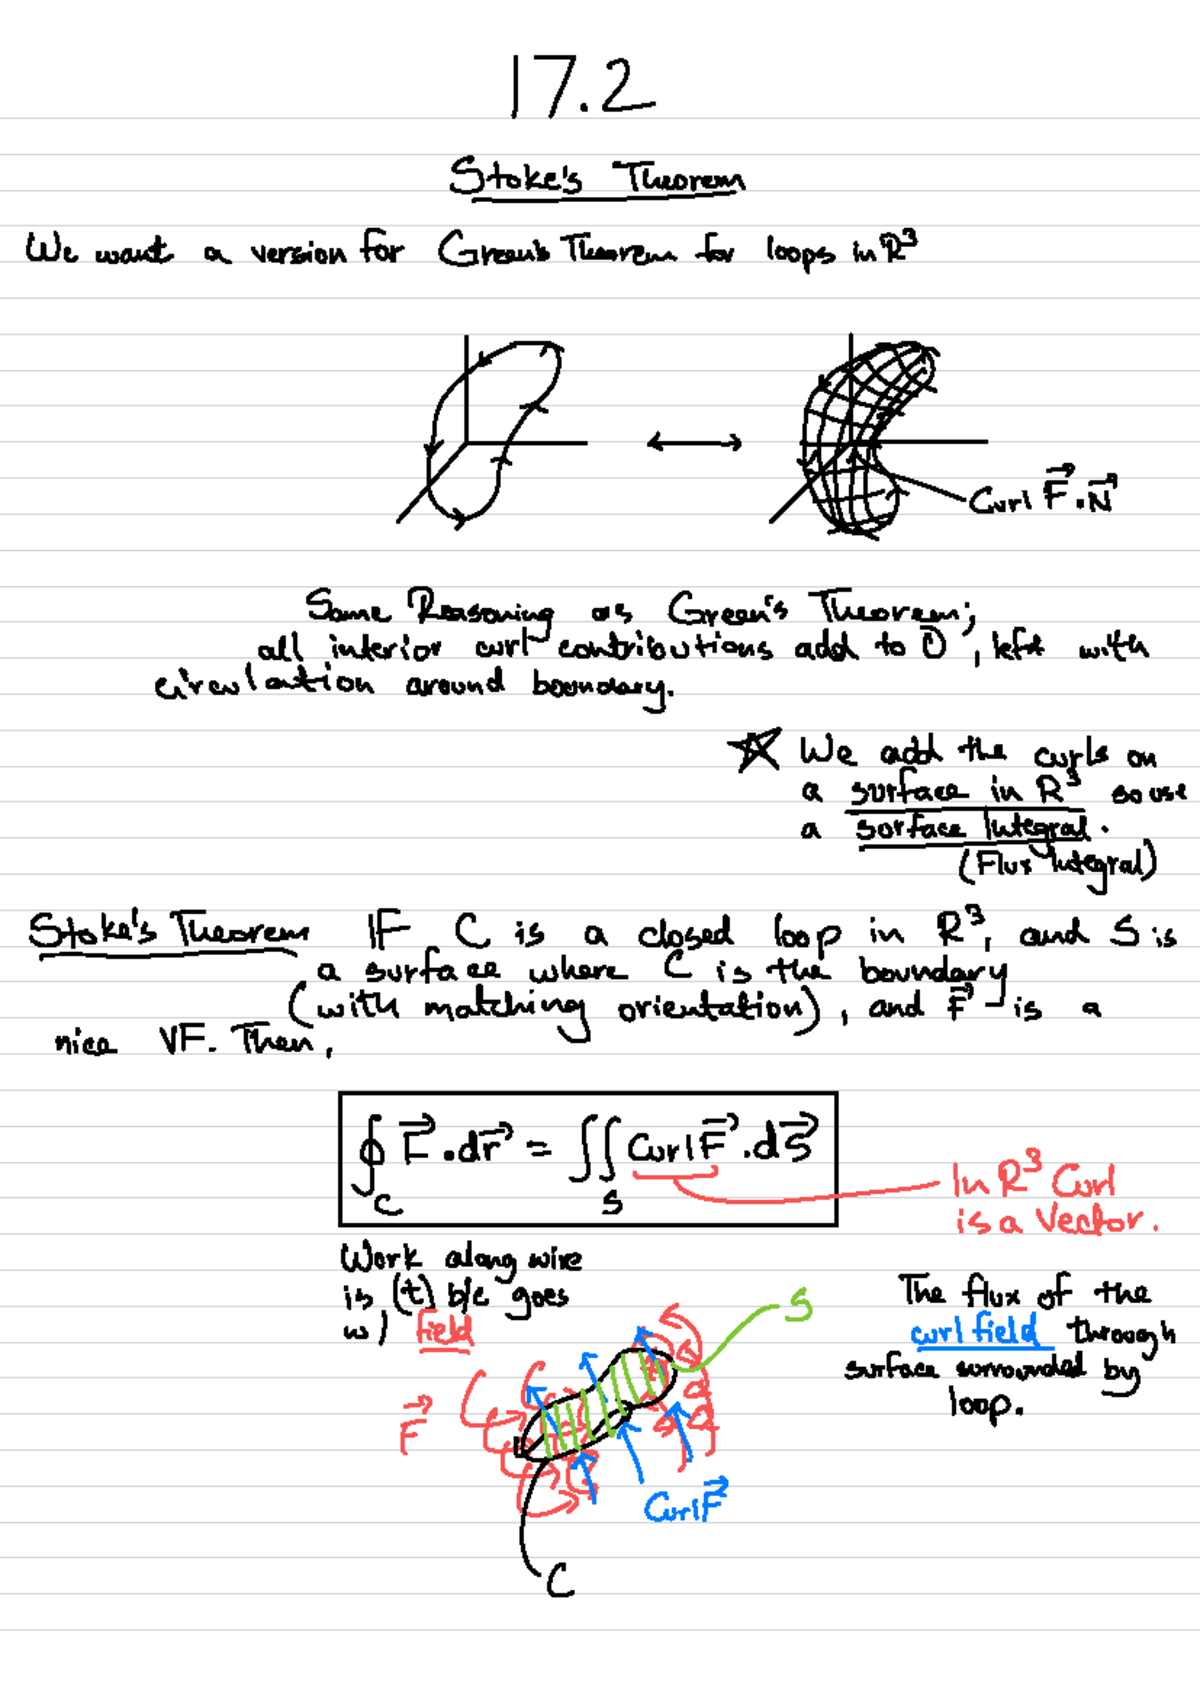 17.2
Stoke's Theorem
We want a version for Green's Theorem for loops in R³
Curl F⃗ · N⃗
Same Reasoning as Green's Theorem;
all interior curl contributions add to 0, left with
circulation around boundary.
☆ We add the curls on
a surface in R³ so use
a surface Integral.
(Flux Integral)
Stoke's Theorem IF C is a closed loop in R³, and S is
a surface where C is the boundary
(with matching orientation), and F⃗ is a
nice VF. Then,
∮_C F⃗ · dr⃗ = ∬_S Curl F⃗ · dS⃗
In R³ Curl
is a Vector.
Work along wire
is (+) b/c goes
w/ field
The flux of the
curl field through
surface surrounded by
loop.
S
F⃗
Curl F⃗
C